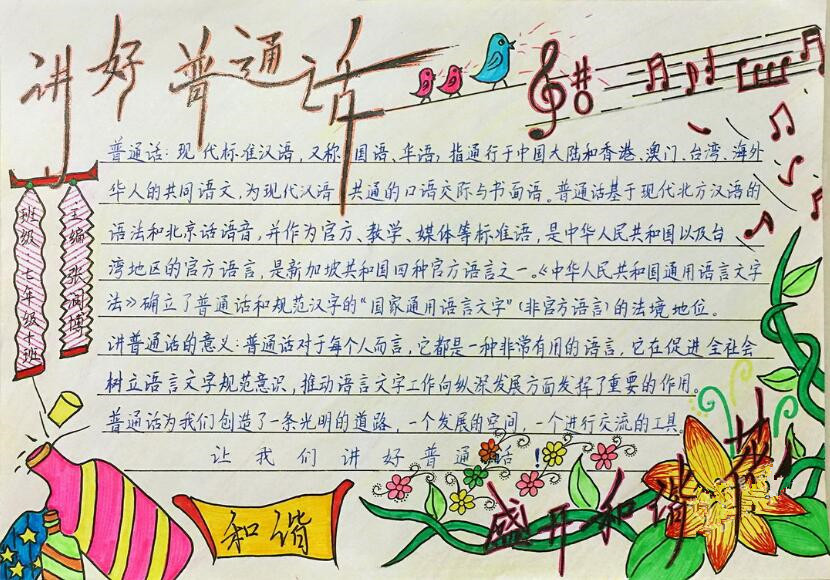 讲好普通话
普通话：现代标准汉语，又称国语、华语，指通行于中国大陆和香港、澳门、台湾、海外
华人的共同语文，为现代汉语共通的口语交际与书面语。普通话基于现代北方汉语的
语法和北京话语音，并作为官方、教学、媒体等标准语，是中华人民共和国以及台
湾地区的官方语言，是新加坡共和国四种官方语言之一。《中华人民共和国通用语言文字
法》确立了普通话和规范汉字的“国家通用语言文字”（非官方语言）的法境地位。
讲普通话的意义：普通话对于每个人而言，它都是一种非常有用的语言，它在促进全社会
树立语言文字规范意识，推动语言文字工作向纵深发展方面发挥了重要的作用。
普通话为我们创造了一条光明的道路，一个发展的空间，一个进行交流的工具。
让我们讲好普通话！
班级 七年级 班
主编 张阅博
和谐
盛开和谐花